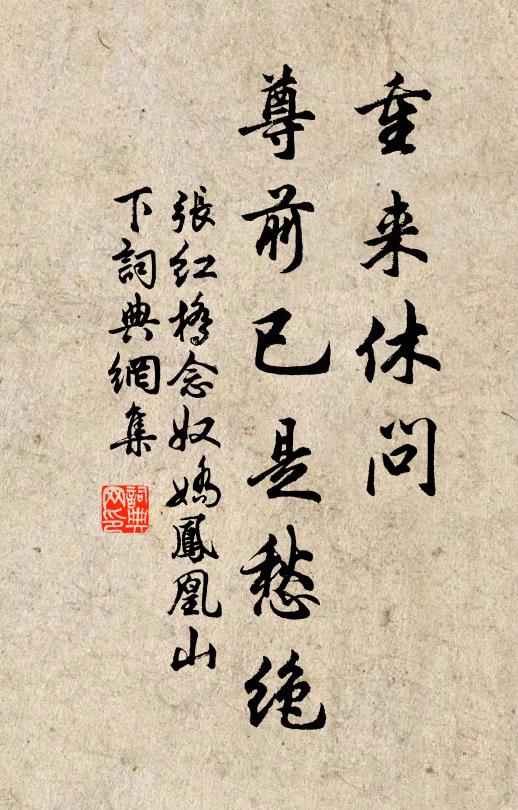 重来休问
尊前已是愁绝
張红橋念奴嬌鳳凰山
下詞典網集
詞典
网印